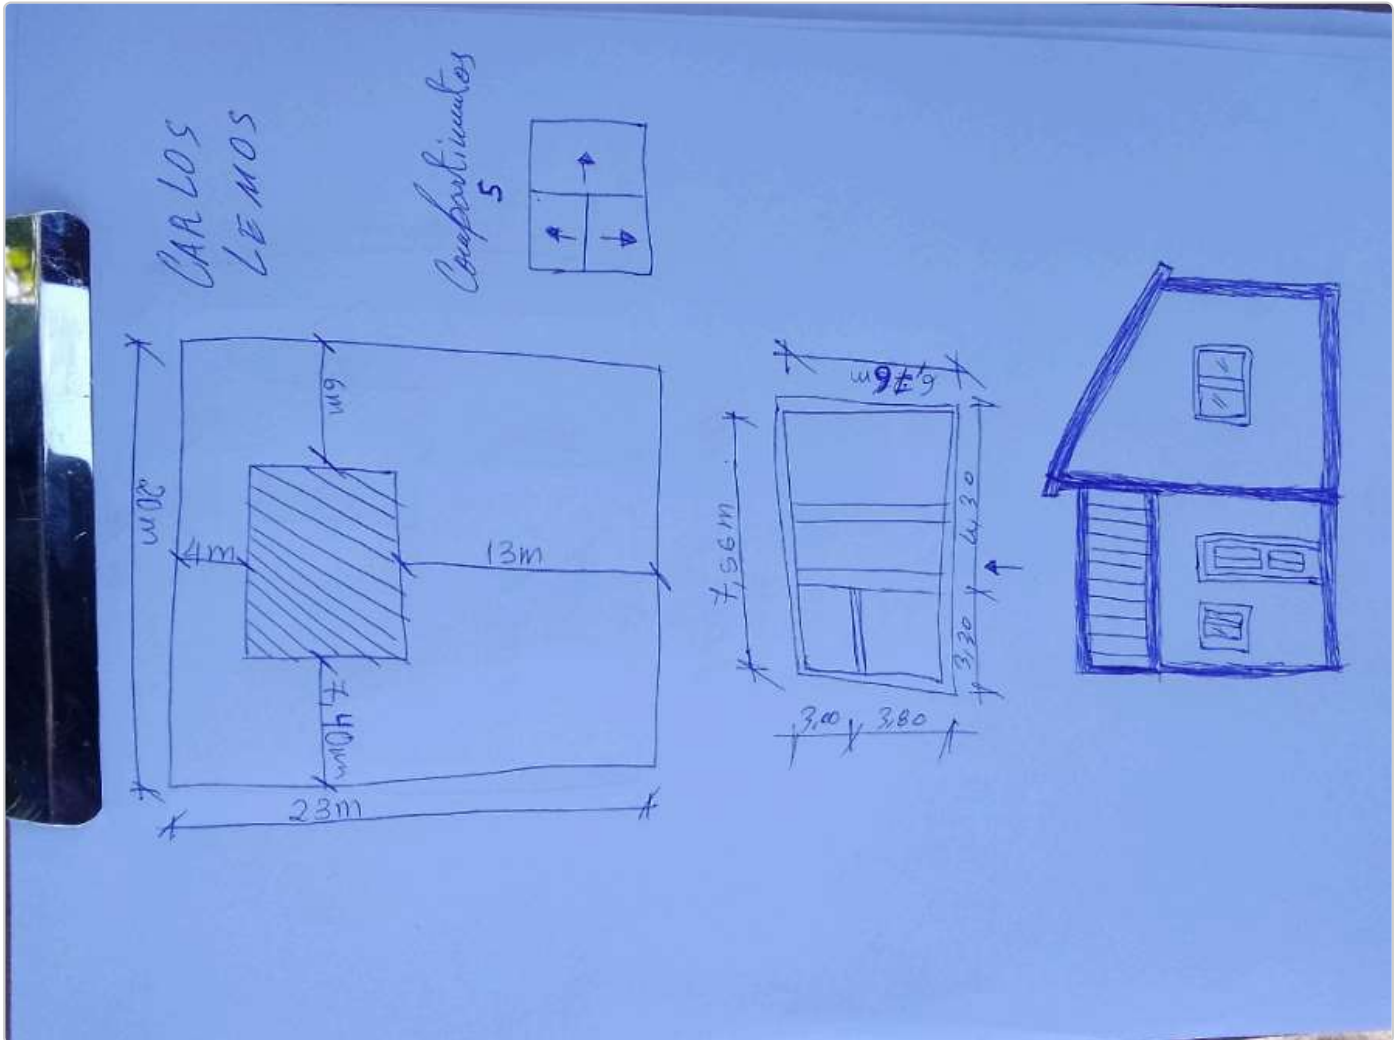 CARLOS
LEMOS
Compartimentos
5
20m
6m
4m
13m
7,40m
23m
6,76m
7,56m
3,30
4,30
3,00
3,80